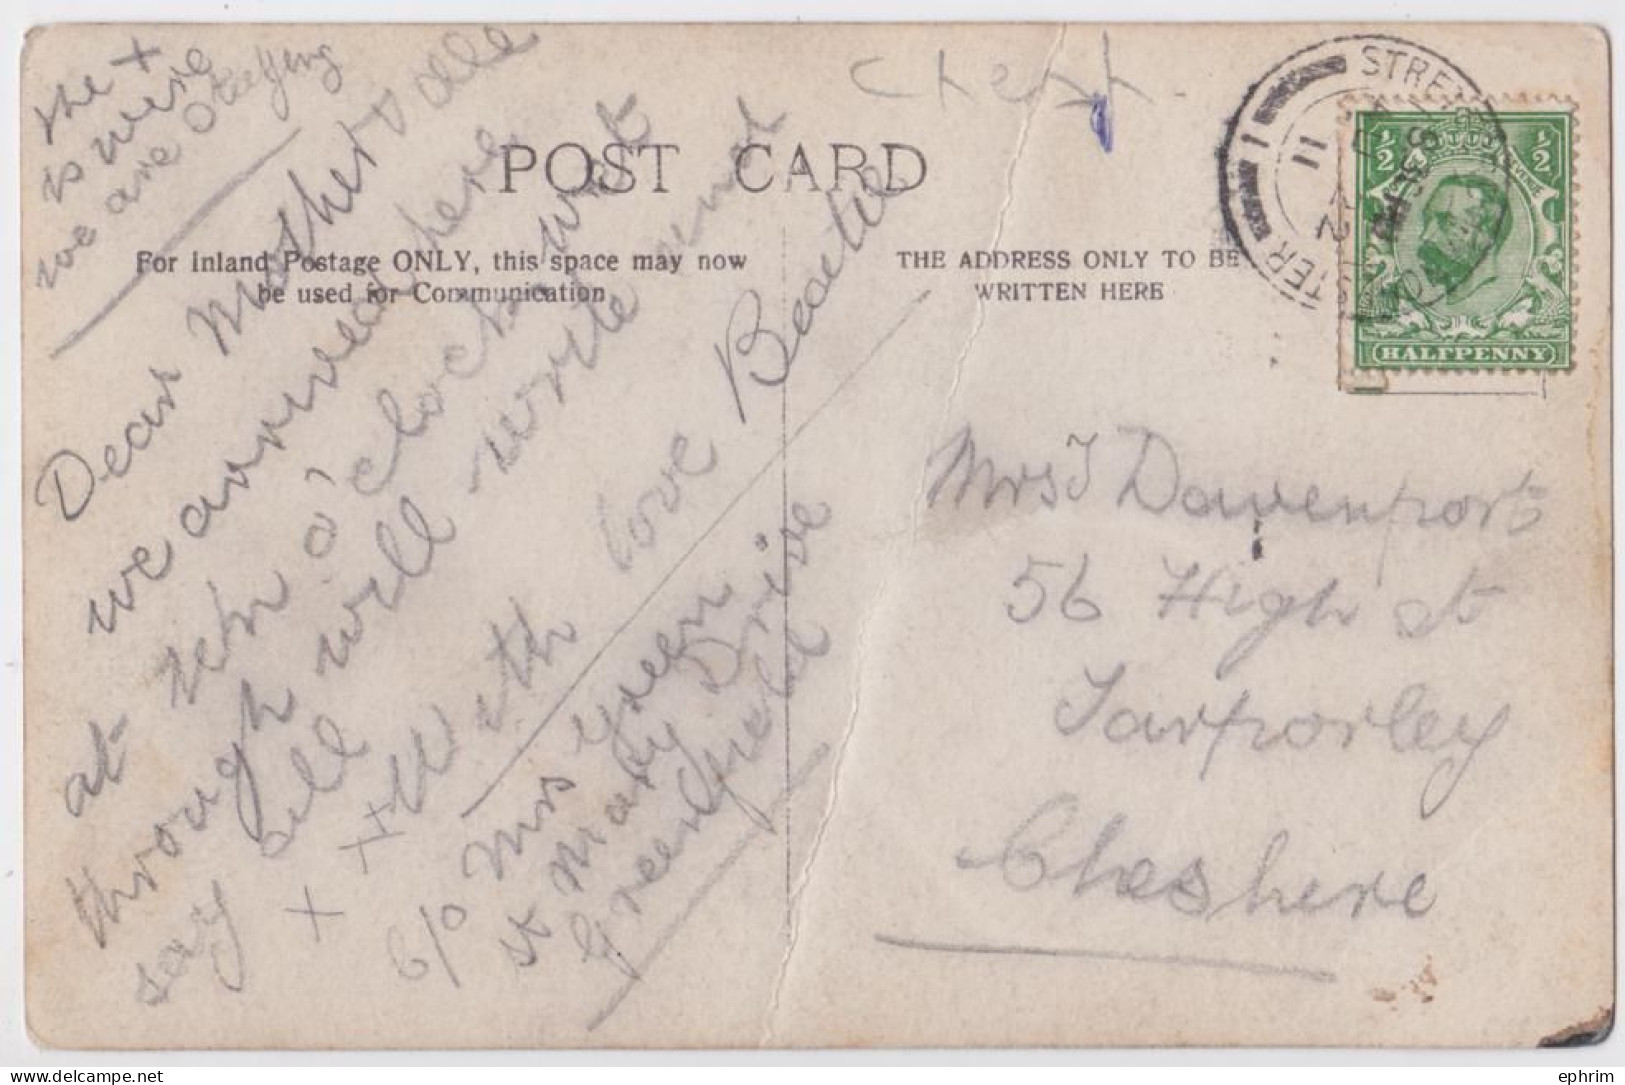 the +
is were
we are
Dear Mother & all
we arrived here
at ten o'clock wet
through will write and
say all
+ + + With love Beattie
c/o Mrs Green
St Mary Drive
Greenfield
Chest.
POST CARD
For Inland Postage ONLY, this space may now
be used for Communication
THE ADDRESS ONLY TO BE
WRITTEN HERE
STRE
STER
11
12
REVENUE
½ ½
HALFPENNY
Mrs J Davenport
56 High st
Tarporley
Cheshire
ephrim @ Delcampe